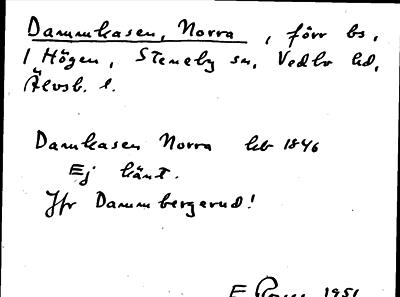 Dammkasen, Norra, förr bs,
i Högen, Steneby sn, Vedbo hd,
Älvsb. l.
Damkasen Norra hb 1846
Ej känt.
Jfr Dammbergerud!
E 1951